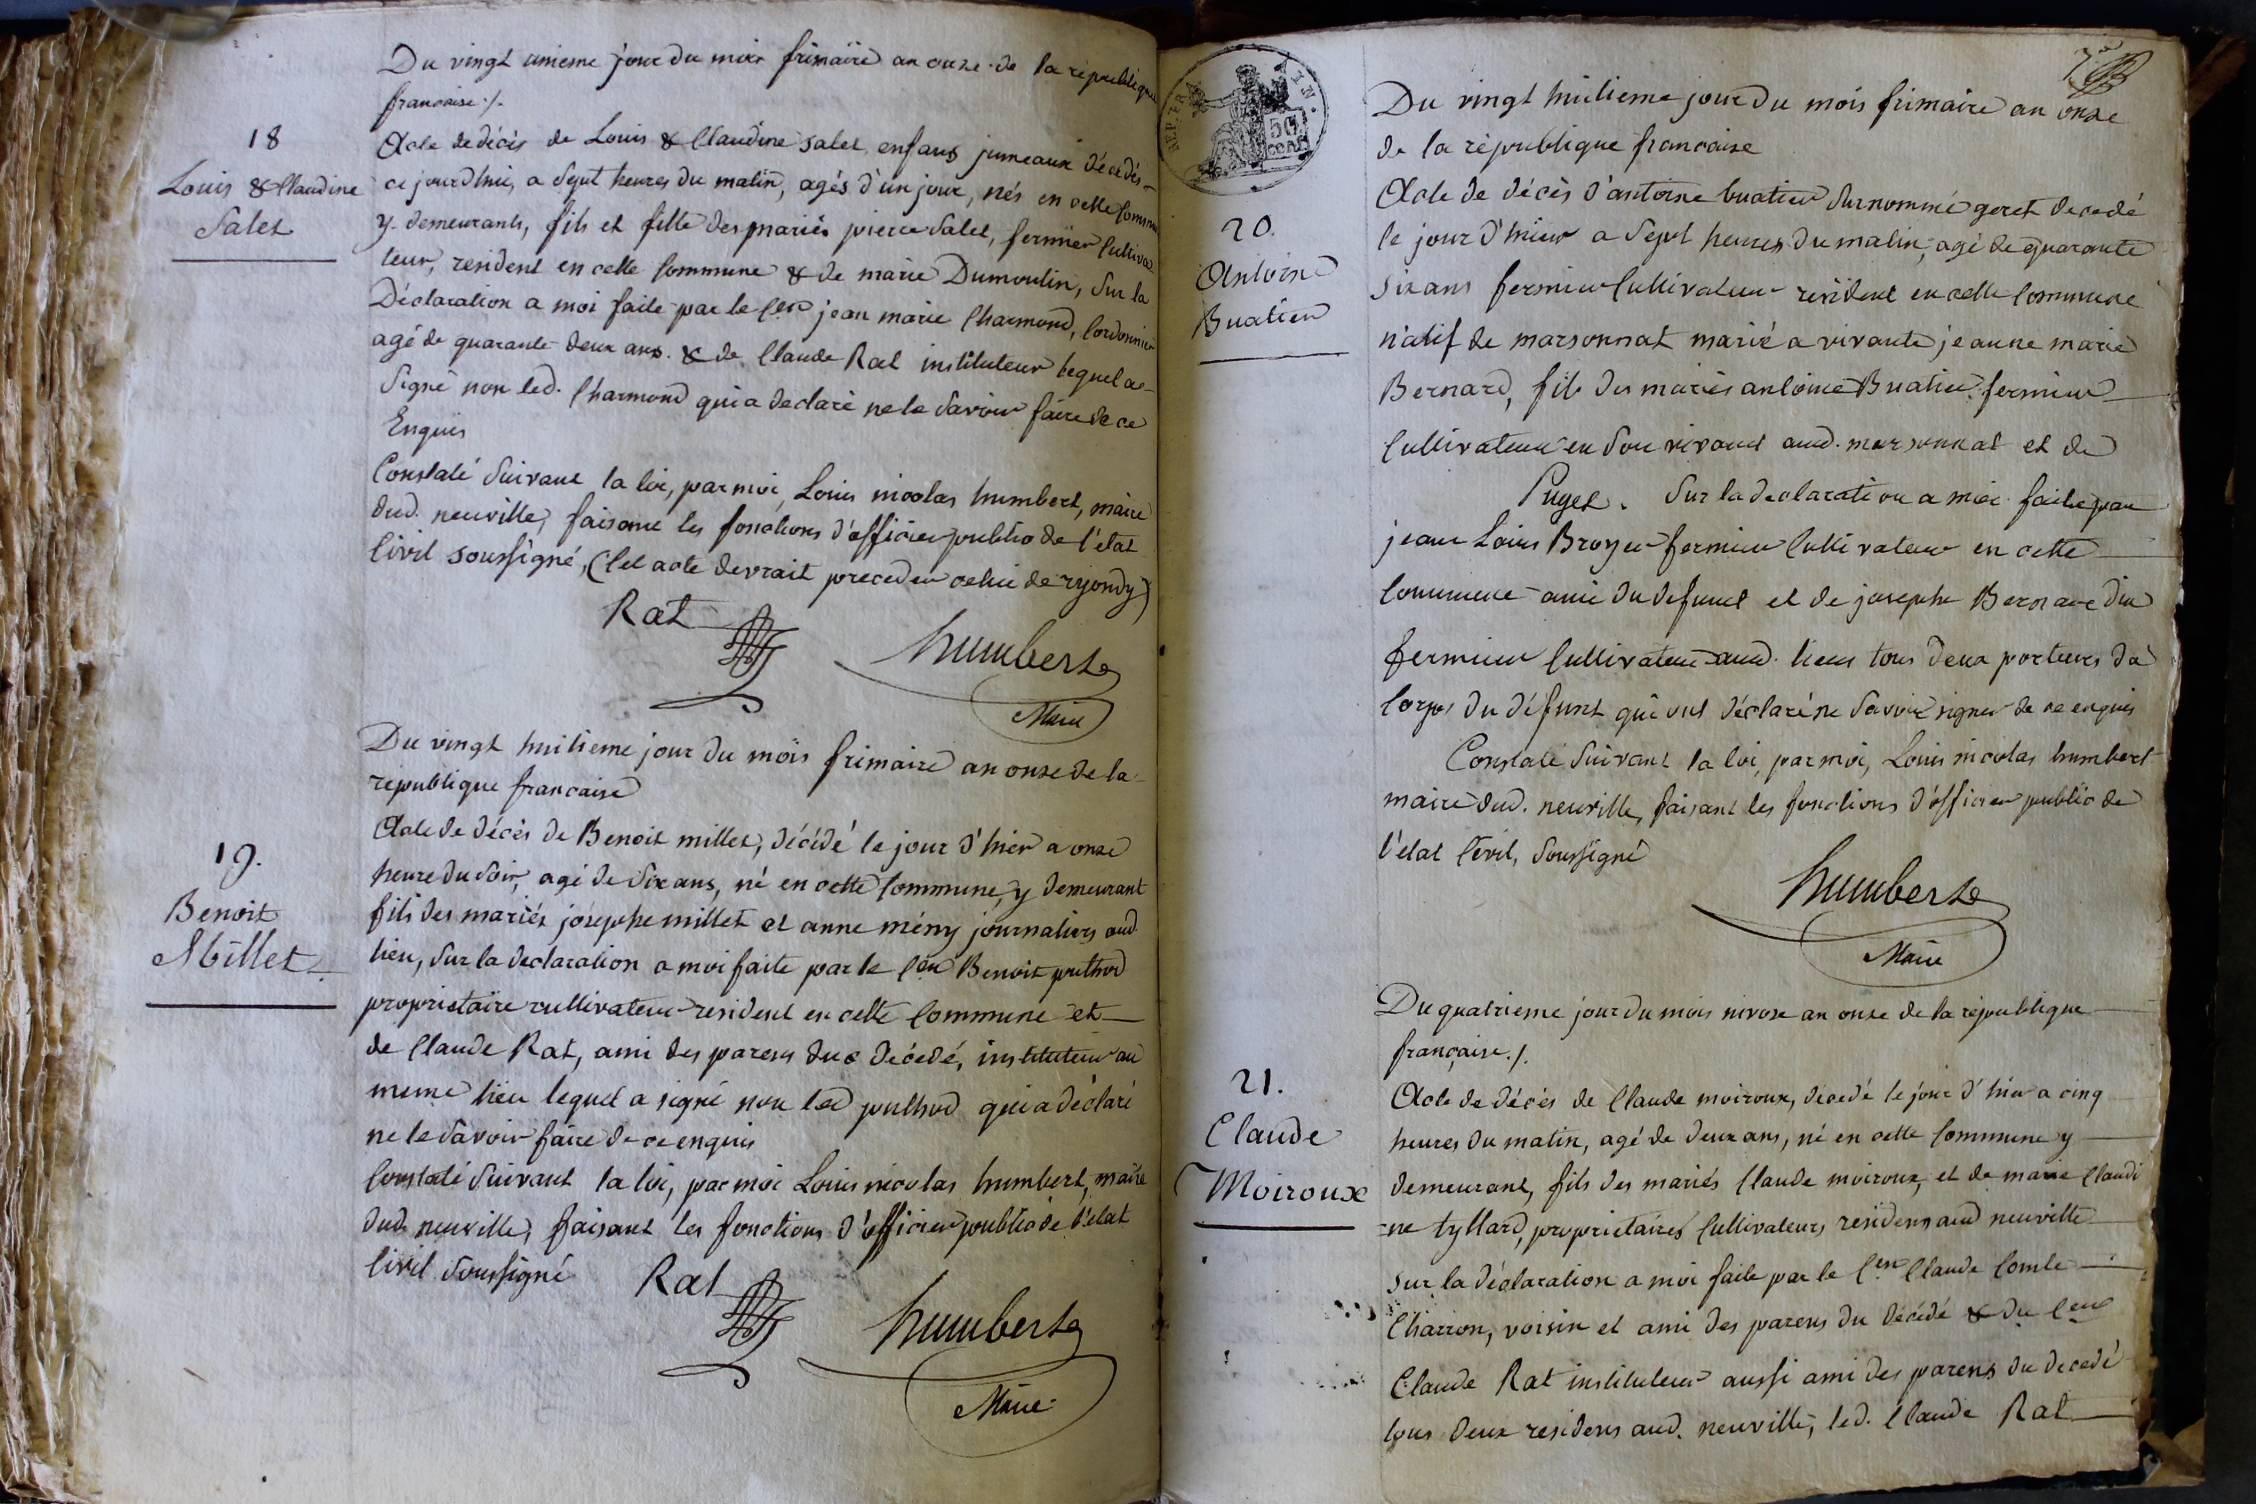 Du vingt unieme jour du mois frimaire an onze de la republique
francaise ./.
18
Louis & Claudine
Salet
Acte de décès de Louis & Claudine Salet enfans jumeaux décédés
ce jourd'hui, a sept heures du matin, agés d'un jour, nés en cette Commune
y demeurants, fils et fille des mariés pierre Salet, fermier Cultiva
teur, resident en cette Commune & de marie Dumoulin, Sur la
Déclaration a moi faite par le Cen jean marie Charmond, Cordonnier
agé de quarante deux ans. & de Claude Rat instituteur lequel a
Signé non led. Charmond qui a declaré ne le Savoir faire de ce
Enquis
Constaté Suivant la loi, par moi, Louis nicolas humbert, maire
dud. neuville, faisant les fonctions d'officier public de l'etat
Civil soussigné, (Cet acte devrait preceder celui de ryondy)
Rat
humbert
Maire
Du vingt huitieme jour du mois frimaire an onze de la
republique francaise
19.
Benoit
Millet
Acte de décès de Benoit millet, décédé le jour d'hier a onze
heure du Soir, agé de Six ans, né en cette Commune, y demeurant
fils des mariés josephe millet et anne mény journaliers aud.
lieu, Sur la declaration a moi faite par le Cen Benoit puthod
proprietaire cultivateur resident en cette Commune et
de Claude Rat, ami des parens du décédé, instituteur au
meme lieu lequel a signé non led puthod qui a déclaré
ne le Savoir faire de ce enquis
Constaté Suivant la loi, par moi Louis nicolas humbert, maire
dud. neuville, faisant les fonctions d'officier public de l'etat
Civil Soussigné
Rat
humbert
Maire
REP. FRA
50
CEN.
Du vingt huitieme jour du mois frimaire an onze
de la république francaise
20.
Antoine
Buatier
Acte de décès d'antoine buatier Surnommé geret decedé
le jour d'hier a Sept heures du matin, agé de quarante
Six ans fermier Cultivateur resident en cette Commune
natif de marsonnat marié a vivante jeanne marie
Bernard, fils des mariés antoine Buatier fermier
Cultivateur en Son vivant aud. marsonnat et de
Puget. Sur la declaration a moi faite par
jean Louis Broyer fermier Cultivateur en cette
Commune ami du defunct et de josephe Bernard
fermier Cultivateur aud. lieu tous deux porteurs du
Corps du défunt qui ont déclaré ne Savoir signer de ce enquis
Constaté Suivant la loi, par moi, Louis nicolas humbert
maire dud. neuville, faisant les fonctions d'officier public de
l'etat Civil, Soussigné
humbert
Maire
Du quatrieme jour du mois nivose an onze de la république
française ./.
21.
Claude
Moiroux
Acte de décès de Claude moiroux, décedé le jour d'hier a cinq
heures du matin, agé de deux ans, né en cette Commune y
demeurant, fils des mariés Claude moiroux, et de marie Claudi
=ne tyllard, proprietaires Cultivateurs residens aud neuville
Sur la déclaration a moi faite par le Cen Claude Comte
Charron, voisin et ami des parens du décédé & du Cen
Claude Rat instituteur aussi ami des parens du decedé
tous deux residens aud. neuville, led. Claude Rat